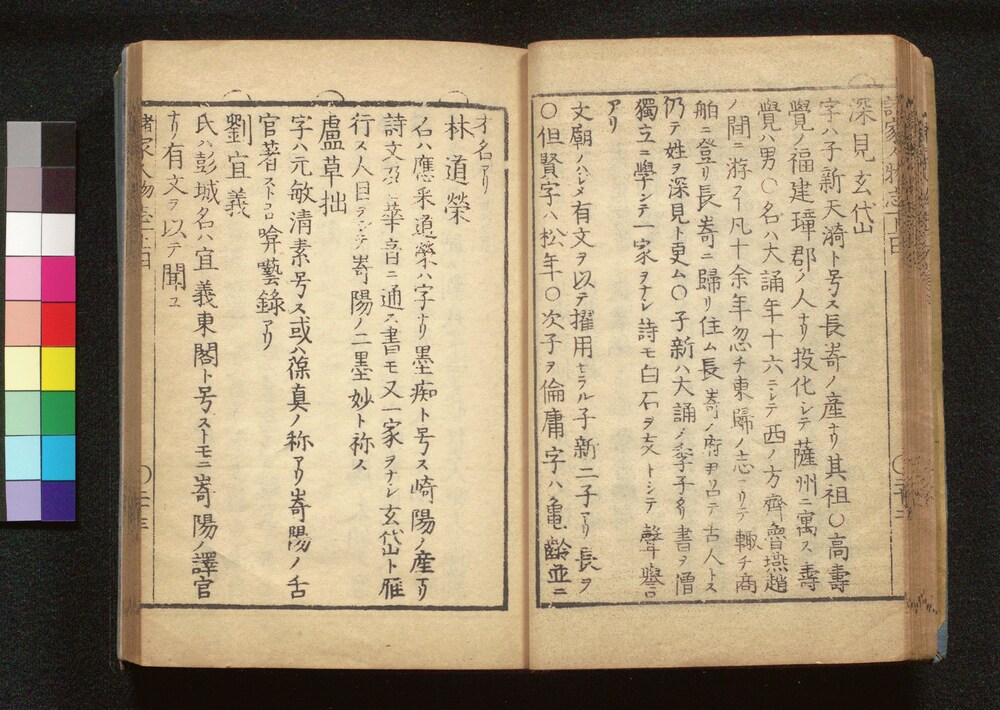 深見玄岱
字ハ子新天漪ト号ス長㟢ノ産ナリ其祖〇高壽
覺ノ福建璋郡ノ人ナリ投化シテ薩州ニ寓ス壽
覺ハ男〇名ハ大誦年十六ニシテ西ノ方齊魯燕趙
ノ間ニ游フ凡十余年忽チ東歸ノ志アリテ輙チ商
舶ニ登リ長㟢ニ歸リ住ム長㟢ノ府尹
古人トス
仍テ姓ヲ深見ト更ム〇子新ハ大誦ノ季子ナリ書ヲ僧
獨立ニ學ンテ一家ヲナシ詩モ白石ヲ友トシテ聲譽
アリ
文廟ノハシメ有文ヲ以テ擢用セラル子新二子アリ長ヲ
〇但賢字ハ松年〇次子ヲ倫庸字ハ亀齡並ニ
才名アリ
林道榮
名ハ應寀道榮ハ字ナリ墨痴ト号ス崎陽ノ産ナリ
詩文及華音ニ通ス書モ又一家ヲナシ玄岱ト雁
行ス人目シテ㟢陽ノ二墨妙ト称ス
盧草拙
字ハ元敏清素号ス或ハ葆真ノ称アリ㟢陽ノ舌
官著ストコロ啽囈錄アリ
劉宜義
氏ハ彭城名ハ宜義東閣ト号ストモニ㟢陽ノ譯官
ナリ有文ヲ以テ聞ユ
諸家人物志上
〇二十三